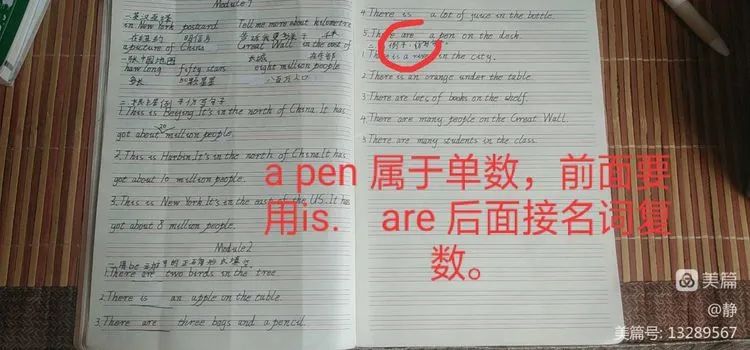 Module1
一.英汉互译
in New York postcard Tell me more about kilometre
在纽约 明信片 告诉我更多关于 千米
a picture of China Great Wall in the east of
一张中国地图 长城 在东部
how long fifty stars eight million people
多长 50颗星星 八百万人口
1.This is Beijing.It's in the north of China.It has
got about 20 million people.
2.This is Harbin.It's in the north of China.It has
got about 10 million people.
3.This is New York.It's in the east of the US.It has
got about 8 million people.
Module2
1.There are two birds in the tree
2.There is an apple on the table.
3.There are three bags and a pencil.
4.There is a lot of juice in the bottle.
5.There are a pen on the desk.
1.There is a river in the city.
2.There is an orange under the table.
3.There are lots of books on the shelf.
4.There are many people on the Great Wall.
5.There are many students in the class.
a pen 属于单数，前面要
用is. are 后面接名词复
数。
美篇
@静
美篇号: 13289567